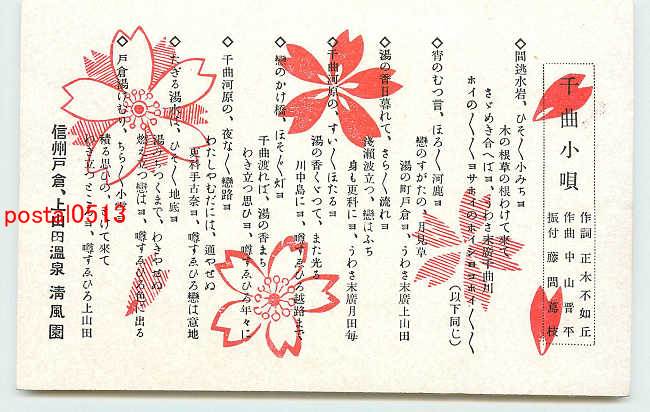 千曲小唄
作詞 正木不如丘
作曲 中山晋平
振付 藤間蔦枝
◇間遠水岩、ひそ〳〵小みちヨ
木の根草の根わけて來て
さゞめき合へばヨ、うわさ末廣千曲川
ホイのノ〳〵〳〵ヨサホイのホイシヨコホイ〳〵〳〵
(以下同じ)
◇宵のむつ言、ほろ〳〵河鹿ヨ
戀のすがたの、月見草
湯の町戸倉ヨ、うわさ末廣上山田
◇湯の香日暮れて、さら〳〵流れヨ
淺瀬波立つ、戀はふち
身も更科にヨ、うわさ末廣月田毎
◇千曲河原の、すい〳〵ほたるヨ
湯の香くゞつて、また光る
川中島にヨ、噂すゑひろ越路まで
◇戀のかけ橋、ほそ〴〵灯ヨ
千曲渡れば、湯の香まち
わき立つ思ひヨ、噂すゑひろ年々に
◇千曲河原の、夜な〳〵戀路ヨ
わたしやむだには、通やせぬ
更科手古奈ヨ、噂すゑひろ戀は意地
◇たぎる湯水は、ひそ〳〵地底ヨ
湯みつくまで、わきやせぬ
燃え立つ戀はヨ、噂すゑひろ色に出る
◇戸倉湯けむり、ちら〳〵小雪ヨ
積る思ひの、とけて來て
わき立つところヨ、噂すゑひろ上山田
信州戸倉、上山田溫泉 清風園
postal0513